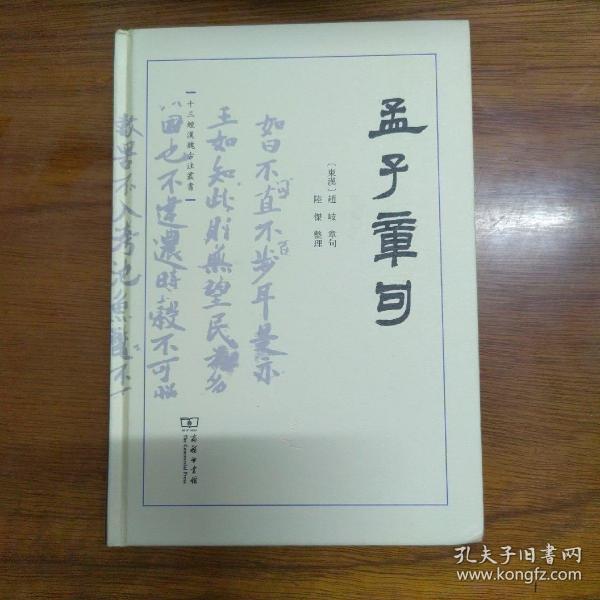 孟子章句
〔東漢〕趙岐 章句
陸傑 整理
如曰不可直不百步耳是亦
王如知此則無望民
不違農時穀不可
數罟不入洿池魚鱉不
十三經漢魏古注叢書
商務印書館
The Commercial Press
孔夫子旧书网
www.kongfz.com